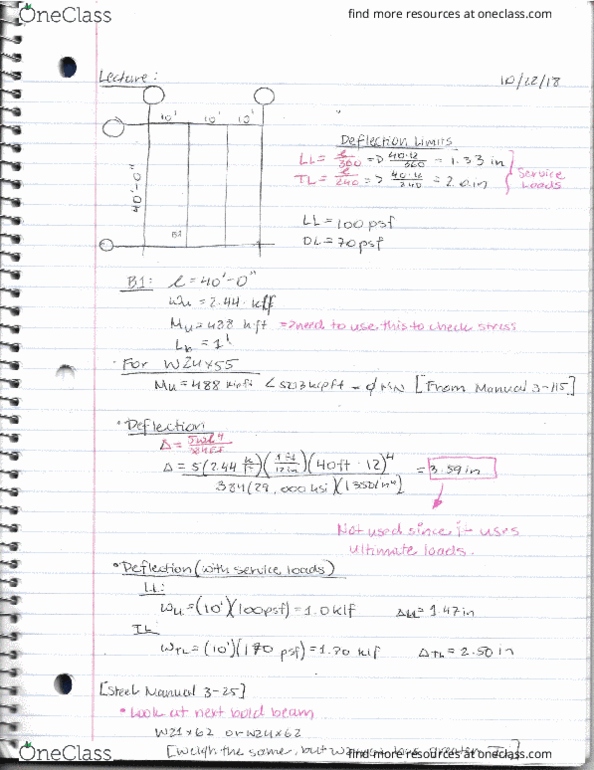 OneClass
find more resources at oneclass.com
Lecture:
10/22/18
10' 10' 10'
Deflection Limits
LL = l/360 => 40·12/360 = 1.33 in
TL = l/240 => 40·12/240 = 2.0 in
Service Loads
40'-0"
B1
LL = 100 psf
DL = 70 psf
B1: l = 40'-0"
Wu = 2.44 klf
Mu = 488 k·ft => need to use this to check stress
Lb = 1'
· For W24x55
Mu = 488 kipft < 503 kipft = ϕMN [From Manual 3-115]
· Deflection
Δ = 5wl⁴/384EI
Δ = 5(2.44 k/ft)(1ft/12in)(40ft·12)⁴ / 384(29,000ksi)(1350in⁴) = 3.59 in
Not used since it uses
ultimate loads.
· Deflection (with service loads)
LL:
WLL = (10')(100psf) = 1.0 klf ΔLL = 1.47 in
TL
WTL = (10')(170 psf) = 1.70 klf ΔTL = 2.50 in
[Steel Manual 3-25]
· Look at next bold beam
W21x62 or W24x62
[weigh the same, but
OneClass
find more resources at oneclass.com